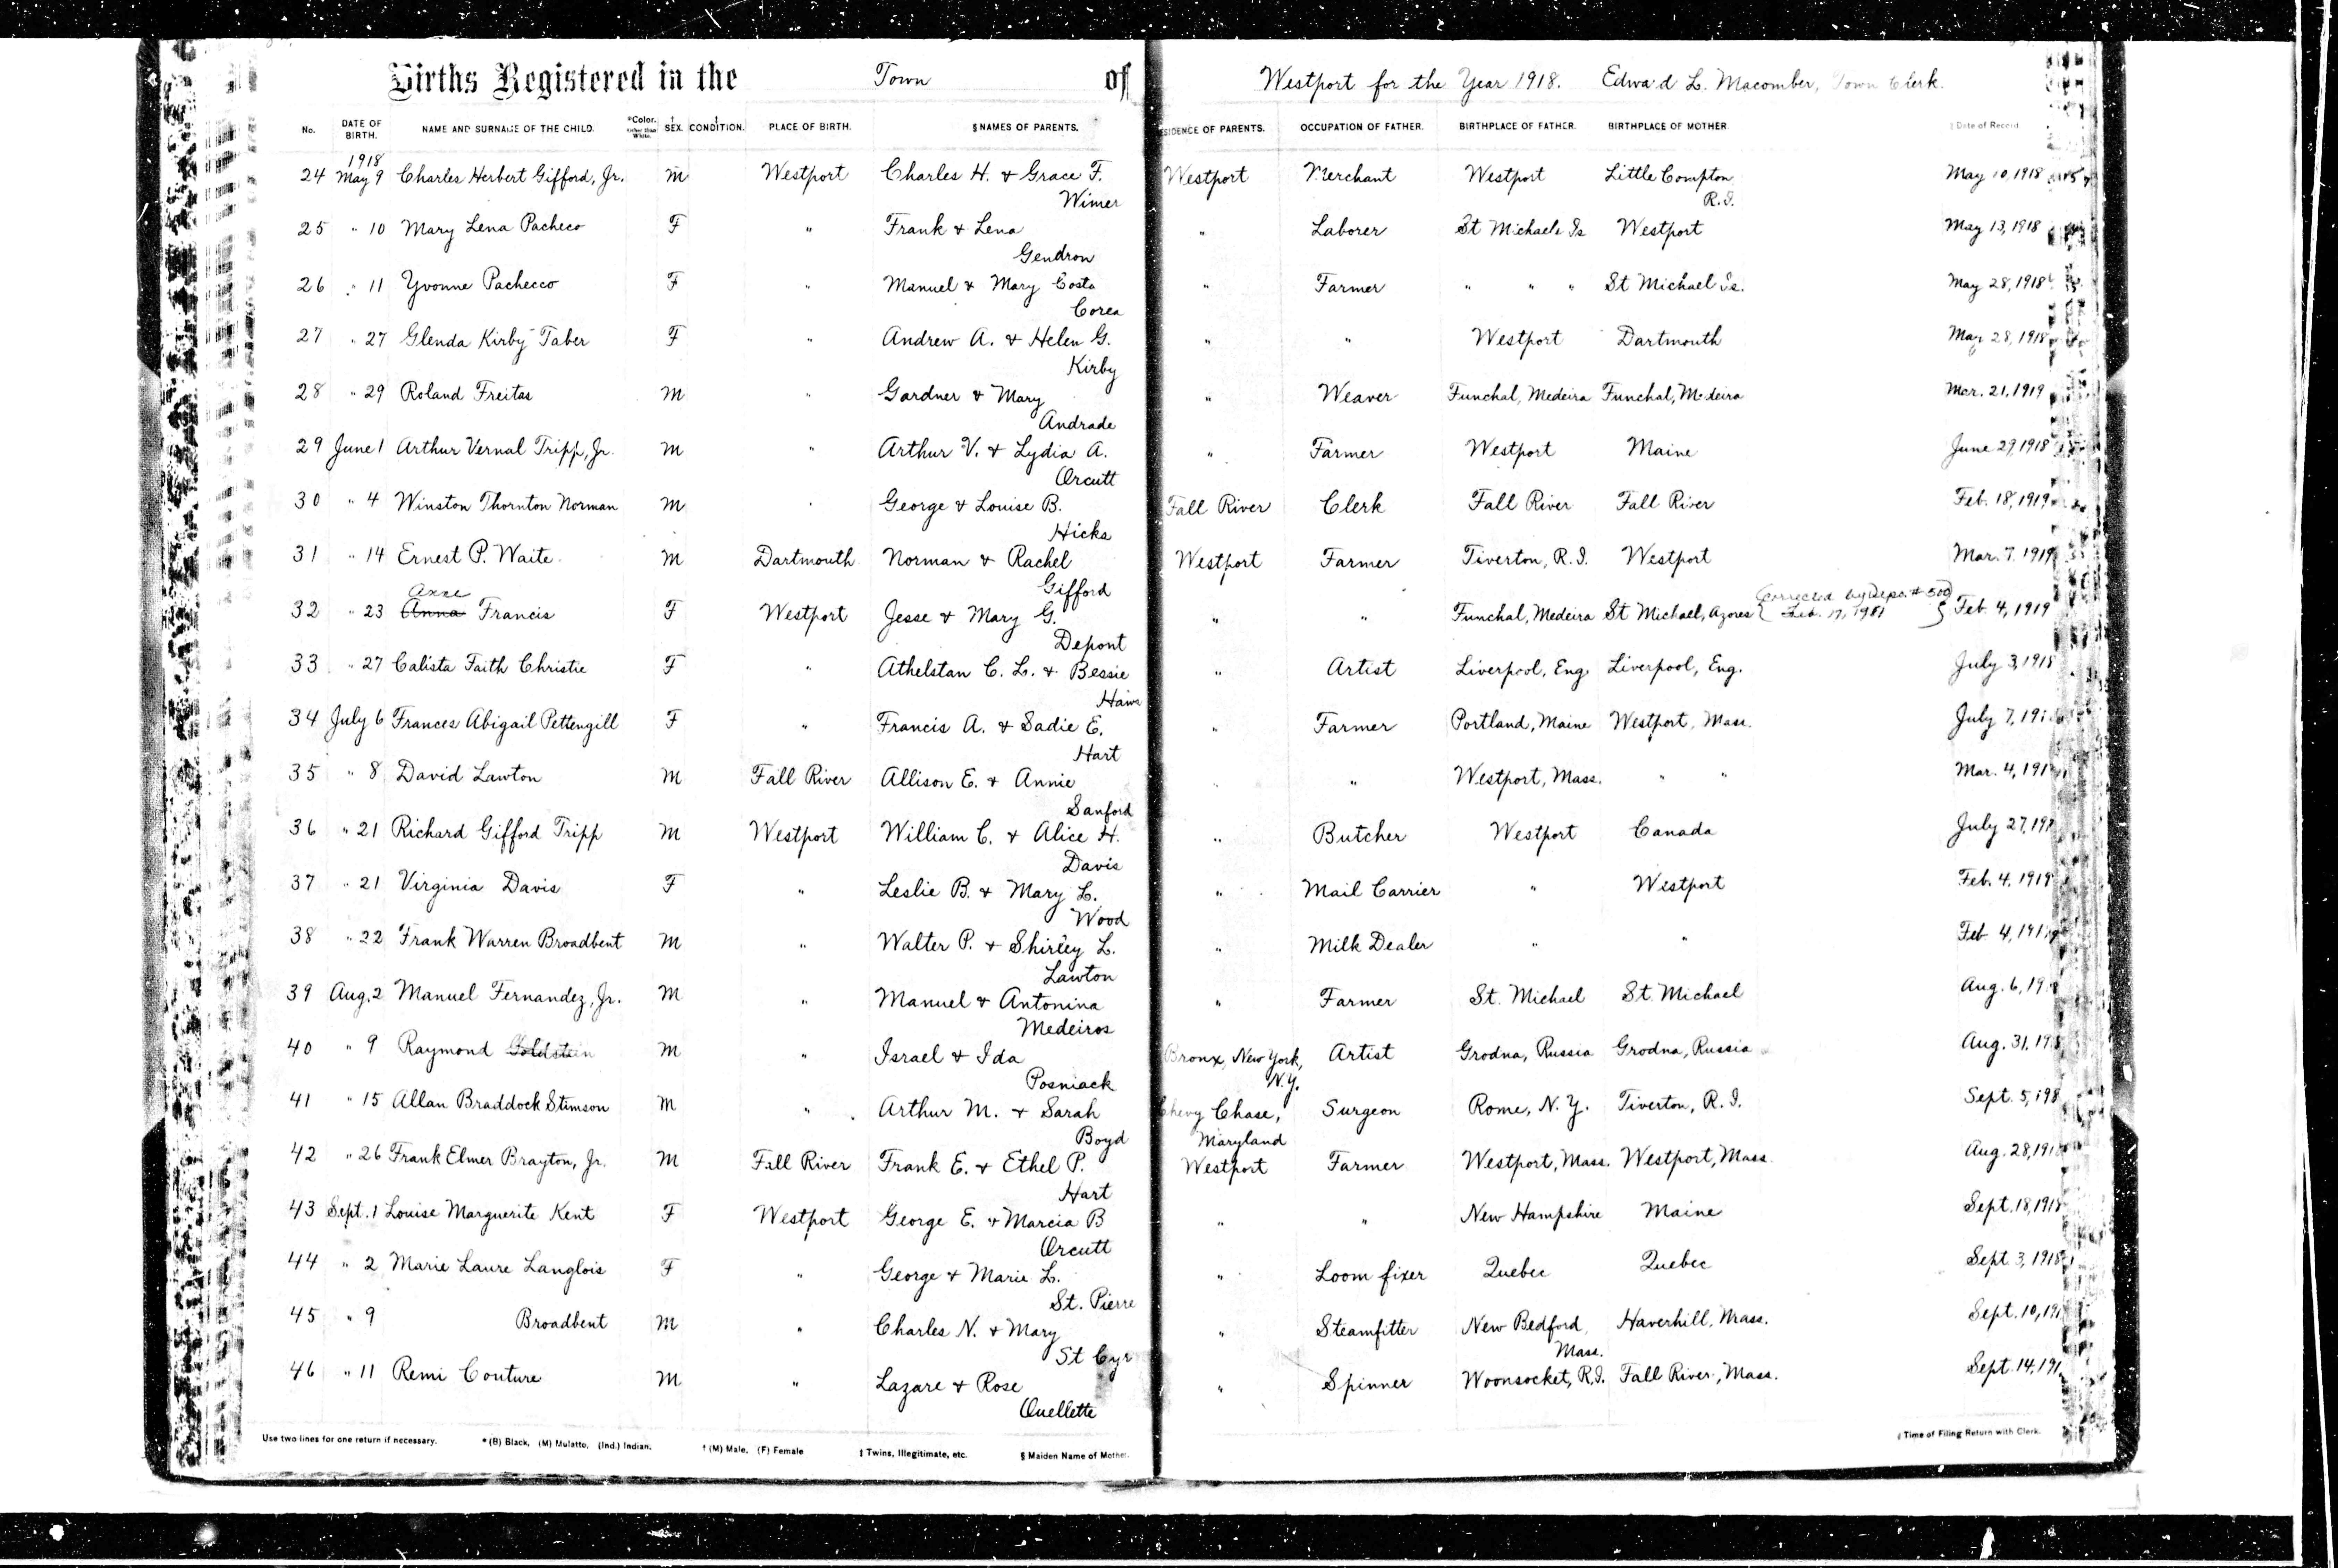 Births Registered in the Town of Westport for the Year 1918. Edward L. Macomber, Town Clerk.
No. DATE OF BIRTH. NAME AND SURNAME OF THE CHILD. *Color. Other than White. † SEX. ‡ CONDITION. PLACE OF BIRTH. § NAMES OF PARENTS. RESIDENCE OF PARENTS. OCCUPATION OF FATHER. BIRTHPLACE OF FATHER. BIRTHPLACE OF MOTHER. ‖ Date of Record
1918
24 May 9 Charles Herbert Gifford, Jr. M Westport Charles H. & Grace F. Westport Merchant Westport Little Compton May 10, 1918
Wimer R.I.
25 " 10 Mary Lena Pacheco F " Frank & Lena " Laborer St Michaels Is Westport May 13, 1918
Gendron
26 " 11 Yvonne Pachecco F " Manuel & Mary Costa " Farmer " " " St Michael Is. May 28, 1918
Corea
27 " 27 Glenda Kirby Taber F " Andrew A. & Helen G. " " Westport Dartmouth May 28, 1918
Kirby
28 " 29 Roland Freitas M " Gardner & Mary " Weaver Funchal, Medeira Funchal, Medeira Mar. 21, 1919
Andrade
29 June 1 Arthur Vernal Tripp, Jr. M " Arthur V. & Lydia A. " Farmer Westport Maine June 29, 1918
Orcutt
30 " 4 Winston Thornton Norman M " George & Louise B. Fall River Clerk Fall River Fall River Feb. 18, 1919
Hicks
31 " 14 Ernest P. Waite. M Dartmouth Norman & Rachel Westport Farmer Tiverton, R.I. Westport Mar. 7, 1919
Gifford
Anne Corrected by Depo. # 500
32 " 23 Anna Francis F Westport Jesse & Mary G. " " Funchal, Medeira St Michael, Azores Feb. 17, 1981 Feb 4, 1919
Depont
33 " 27 Calista Faith Christie F " Athelstan C. L. & Bessie " Artist Liverpool, Eng. Liverpool, Eng. July 3, 1918
34 July 6 Frances Abigail Pettengill F " Francis A. & Sadie E. " Farmer Portland, Maine Westport, Mass. July 7,
Hart
35 " 8 David Lawton M Fall River Allison E. & Annie " " Westport, Mass. " " Mar. 4,
Sanford
36 " 21 Richard Gifford Tripp M Westport William C. & Alice H. " Butcher Westport Canada July 27,
Davis
37 " 21 Virginia Davis F " Leslie B. & Mary L. " Mail Carrier " Westport Feb. 4, 1919
Wood
38 " 22 Frank Warren Broadbent M " Walter P. & Shirley L. " Milk Dealer " " Feb 4, 1919
Lawton
39 Aug. 2 Manuel Fernandez, Jr. M " Manuel & Antonina " Farmer St. Michael St. Michael Aug. 6,
Medeiros
40 " 9 Raymond Goldstein M " Israel & Ida Bronx, New York, Artist Grodna, Russia Grodna, Russia Aug. 31,
Posniack N.Y.
41 " 15 Allan Braddock Stimson M " Arthur M. & Sarah Chevy Chase, Surgeon Rome, N.Y. Tiverton, R.I. Sept. 5,
Boyd Maryland
42 " 26 Frank Elmer Brayton, Jr. M Fall River Frank E. & Ethel P. Westport Farmer Westport, Mass. Westport, Mass. Aug. 28,
Hart
43 Sept. 1 Louise Marguerite Kent F Westport George E. & Marcia B " " New Hampshire Maine Sept. 18, 1918
Orcutt
44 " 2 Marie Laure Langlois F " George & Marie L. " Loom fixer Quebec Quebec Sept. 3, 1918
St. Pierre
45 " 9 Broadbent M " Charles N. & Mary " Steamfitter New Bedford, Haverhill, Mass. Sept. 10,
St Cyr Mass.
46 " 11 Remi Couture M " Lazare & Rose " Spinner Woonsocket, R.I. Fall River, Mass. Sept. 14,
Ouellette
Use two lines for one return if necessary. * (B) Black, (M) Mulatto, (Ind.) Indian. † (M) Male, (F) Female ‡ Twins, Illegitimate, etc. § Maiden Name of Mother. ‖ Time of Filing Return with Clerk.